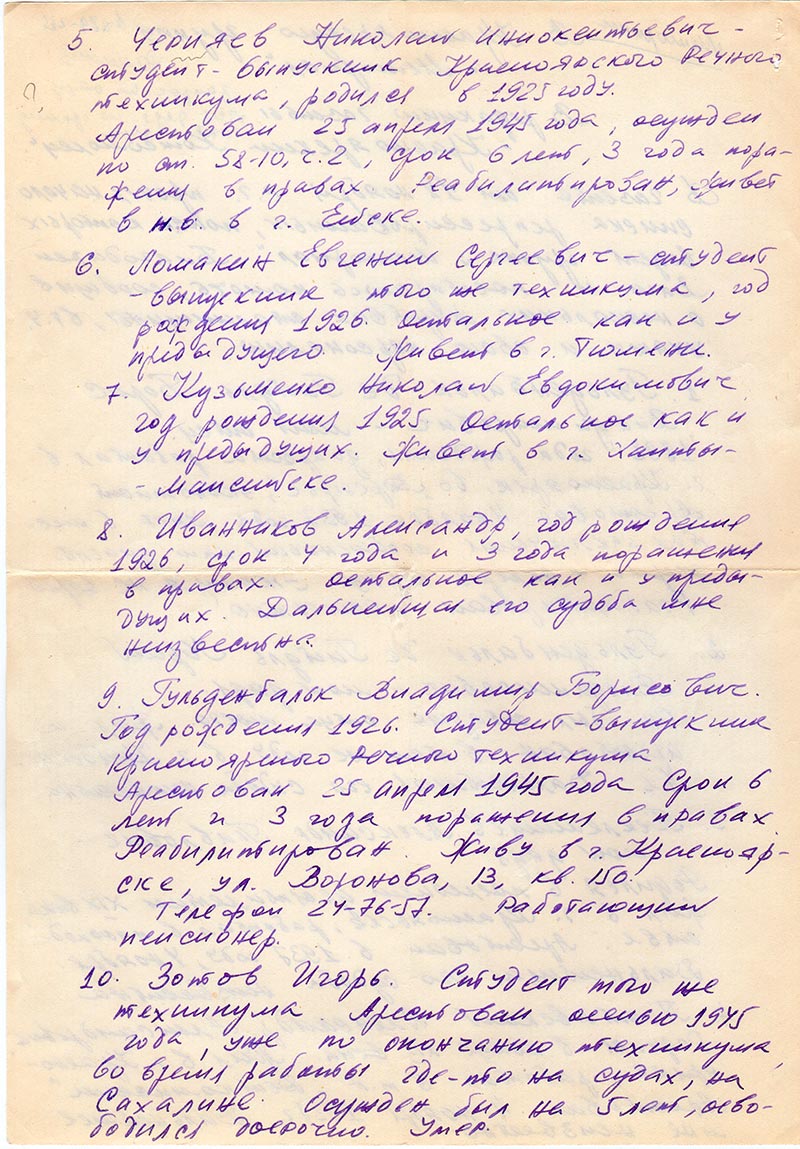 5. Черняев Николай Иннокентьевич -
студент-выпускник Красноярского Речного
техникума, родился в 1925 году.
Арестован 25 апреля 1945 года, осужден
по ст. 58-10, ч.2, срок 6 лет, 3 года пора-
жения в правах. Реабилитирован, живет
в н.в. в г.
6. Ломакин Евгений Сергеевич - студент
-выпускник того же техникума, год
рождения 1926. Остальное как и у
предыдущего. Живет в г. Тюмени.
7. Кузьменко Николай Евдокимович
год рождения 1925. Остальное как и
у предыдущих. Живет в г. Ханты-
-Мансийске.
8. Иванников Александр, год рождения
1926, срок 4 года и 3 года поражения
в правах. Остальное как и у преды-
дущих. Дальнейшая его судьба мне
неизвестна.
9. Гульденбальк Владимир Борисович.
Год рождения 1926. Студент-выпускник
Красноярского Речного техникума
Арестован 25 апреля 1945 года Срок 6
лет и 3 года поражения в правах
Реабилитирован. Живу в г. Краснояр-
ске, ул. Воронова, 13, кв. 150.
Телефон 24-76-57. Работающий
пенсионер.
10. Зотов Игорь. Студент того же
техникума. Арестован осенью 1945
года, уже по окончанию техникума,
во время работы где-то на судах, на
Сахалине. Осужден был на 5 лет, осво-
бодился досрочно. Умер.